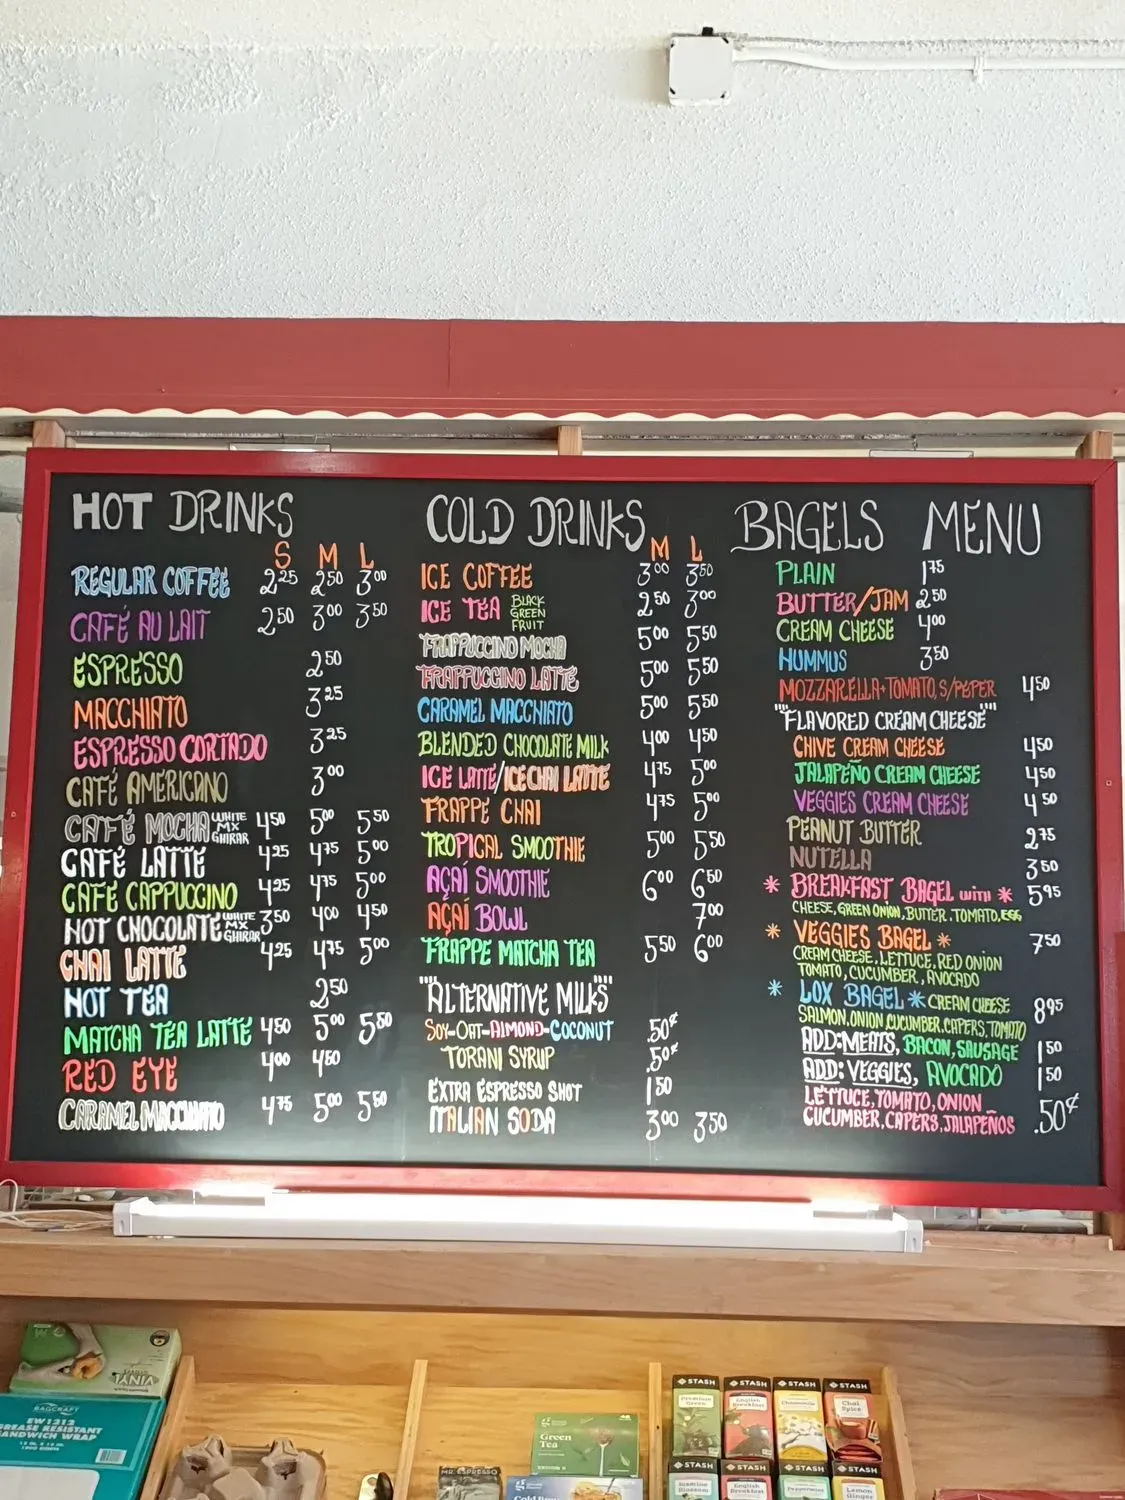 HOT DRINKS
S M L
REGULAR COFFEE 2.25 2.50 3.00
CAFÉ AU LAIT 2.50 3.00 3.50
ESPRESSO 2.50
MACCHIATO 3.25
ESPRESSO CORTADO 3.25
CAFÉ AMERICANO 3.00
CAFÉ MOCHA WHITE MX GHIRAR 4.50 5.00 5.50
CAFÉ LATTE 4.25 4.75 5.00
CAFÉ CAPPUCCINO 4.25 4.75 5.00
HOT CHOCOLATE WHITE MX GHIRAR 3.50 4.00 4.50
CHAI LATTE 4.25 4.75 5.00
HOT TEA 2.50
MATCHA TEA LATTE 4.50 5.00 5.50
RED EYE 4.00 4.50
CARAMEL MACCHIATO 4.75 5.00 5.50
COLD DRINKS
M L
ICE COFFEE 3.00 3.50
ICE TEA BLACK GREEN FRUIT 2.50 3.00
FRAPPUCCINO MOCHA 5.00 5.50
FRAPPUCCINO LATTE 5.00 5.50
CARAMEL MACCHIATO 5.00 5.50
BLENDED CHOCOLATE MILK 4.00 4.50
ICE LATTE/ICE CHAI LATTE 4.75 5.00
FRAPPE CHAI 4.75 5.00
TROPICAL SMOOTHIE 5.00 5.50
AÇAÍ SMOOTHIE 6.00 6.50
AÇAÍ BOWL 7.00
FRAPPE MATCHA TEA 5.50 6.00
""ALTERNATIVE MILKS""
SOY-OAT-ALMOND-COCONUT .50¢
TORANI SYRUP .50¢
EXTRA ESPRESSO SHOT 1.50
ITALIAN SODA 3.00 3.50
BAGELS MENU
PLAIN 1.75
BUTTER/JAM 2.50
CREAM CHEESE 4.00
HUMMUS 3.50
MOZZARELLA+TOMATO, S/PEPER 4.50
""FLAVORED CREAM CHEESE""
CHIVE CREAM CHEESE 4.50
JALAPEÑO CREAM CHEESE 4.50
VEGGIES CREAM CHEESE 4.50
PEANUT BUTTER 2.75
NUTELLA 3.50
* BREAKFAST BAGEL WITH * 5.95
CHEESE, GREEN ONION, BUTTER, TOMATO, EGG
* VEGGIES BAGEL * 7.50
CREAM CHEESE, LETTUCE, RED ONION
TOMATO, CUCUMBER, AVOCADO
* LOX BAGEL * CREAM CHEESE 8.95
SALMON, ONION, CUCUMBER, CAPERS, TOMATO
ADD: MEATS, BACON, SAUSAGE 1.50
ADD: VEGGIES, AVOCADO 1.50
LETTUCE, TOMATO, ONION
CUCUMBER, CAPERS, JALAPEÑOS .50¢
VINYL
BAGCRAFT
EW1212
GREASE RESISTANT
SANDWICH WRAP
Green
Tea
MR. ESPRESSO
STASH
Premium
Green
STASH
English
Breakfast
STASH
Chamomile
STASH
Chai
Spice
STASH
Jasmine
Blossom
STASH
English
Breakfast
STASH
Peppermint
STASH
Lemon
Ginger